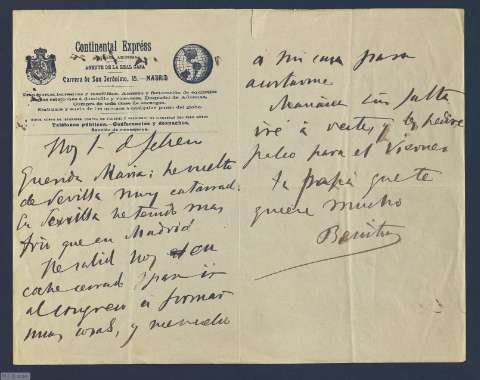 Continental Express
AGENTE DE LA REAL CASA
Carrera de San Jerónimo, 15.—MADRID
Hoy 1º de febrero
Querida María: he vuelto
de Sevilla muy acatarrado.
En Sevilla he tenido mas
frío que en Madrid
He salido hoy en
coche cerrado para ir
al Congreso a firmar
unas cosas, y me vuelvo
á mi casa para
acostarme
Mañana sin falta
iré a verte, y te pediré
palco para el Viernes
Tu papá que te
quiere mucho
Benito